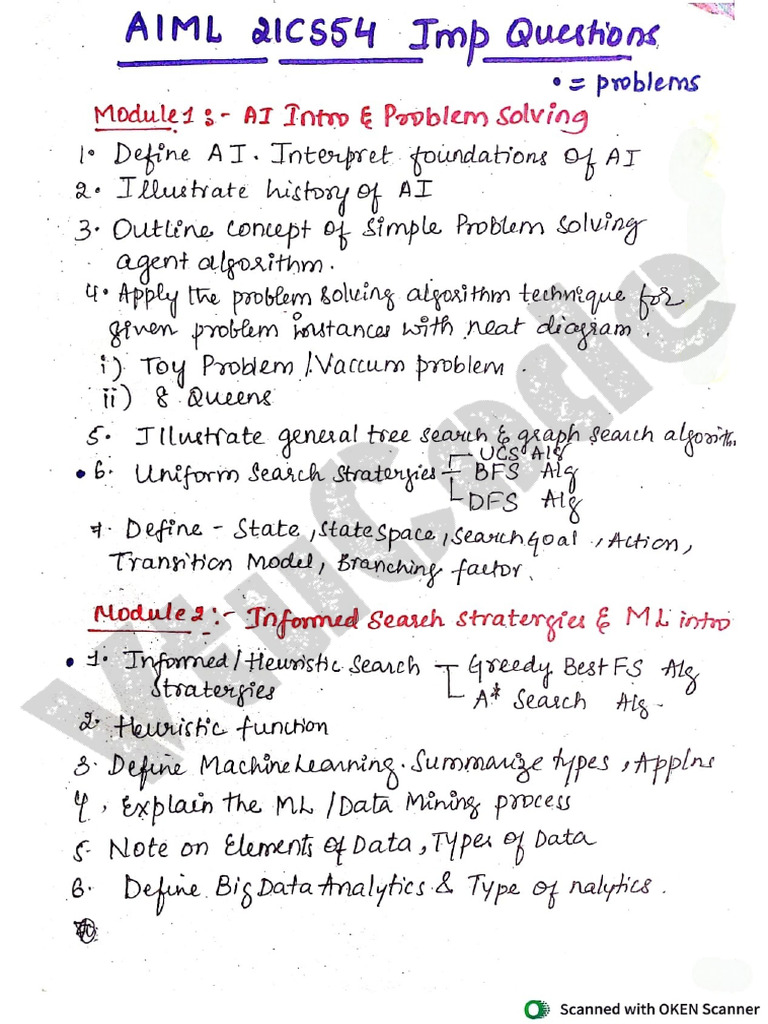 AIML 21CS54 Imp Questions
• = problems
Module 1 :- AI Intro & Problem Solving
1. Define AI. Interpret foundations of AI
2. Illustrate history of AI
3. Outline concept of simple Problem solving
agent algorithm.
4. Apply the problem solving algorithm technique for
given problem instances with neat diagram.
i) Toy Problem / Vaccum problem.
ii) 8 Queens
5. Illustrate general tree search & graph search algorithm.
UCS Alg
• 6. Uniform Search Stratergies BFS Alg
DFS Alg
7. Define - State, State Space, Search Goal, Action,
Transition Model, Branching factor.
Module 2 :- Informed Search Stratergies & ML intro
• 1. Informed / Heuristic Search Greedy Best FS Alg
Stratergies A* Search Alg.
2. Heuristic function
3. Define Machine Learning. Summarize types, Applns
4, Explain the ML / Data Mining process
5. Note on Elements of Data, Types of Data
6. Define Big Data Analytics & Type of nalytics.
VTUCircle
Scanned with OKEN Scanner